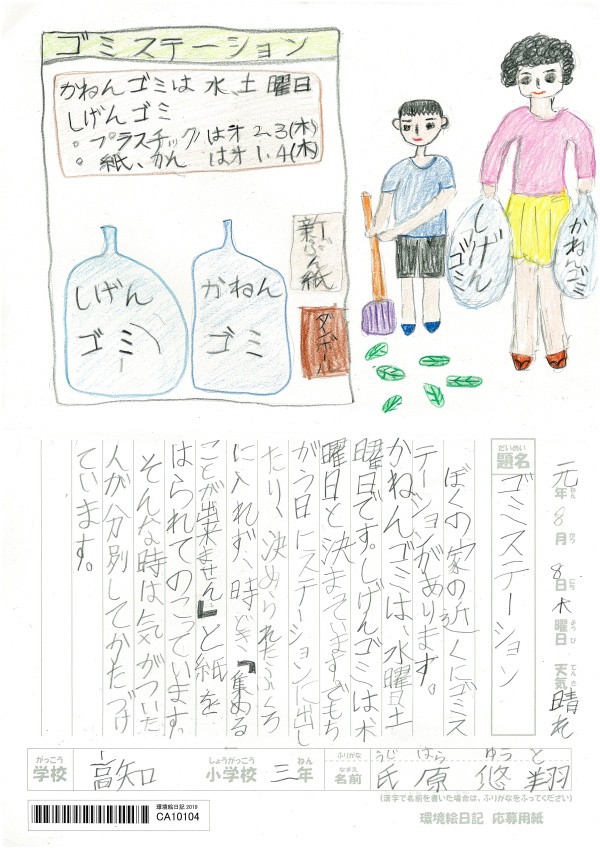 ゴミステーション
かねんゴミは 水、土 曜日
しげんゴミ
。プラスチックは才2.3(木)
。紙、かん は才1.4(木)
しげん
ゴミ
かねん
ゴミ
新ぶん紙
ダンボール
しげん
ゴミ
かねんゴミ
元年 8月 8日 木曜日 天気 晴れ
ねん がつ にち ようび てんき
だいめい
題名 ゴミステーション
ぼくの家の近くにゴミス
テーションがあります。
かねんゴミは、水曜日土
曜日です。しげんゴミは木
曜日と決まています。でもち
がう日にステーションに出し
たり、決められたふくろ
に入れず、時どき「集める
ことが出来ません」と紙を
はられてのこっています。
そんな時は気がついた
人が分別してかたづけ
ています。
がっこう しょうがっこう ねん
学校 高知 小学校 三年
ふりがな うじ はら ゆう と
なまえ
名前 氏原 悠翔
(漢字で名前を書いた場合は、ふりがなをふってください)
環境絵日記2019
CA10104
環境絵日記 応募用紙